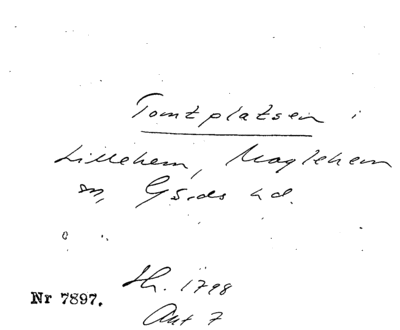 Tomtplatsen i
Lillehem, Maglehem
sn, Gärds hd.
Nr 7897.
1798
Akt 7